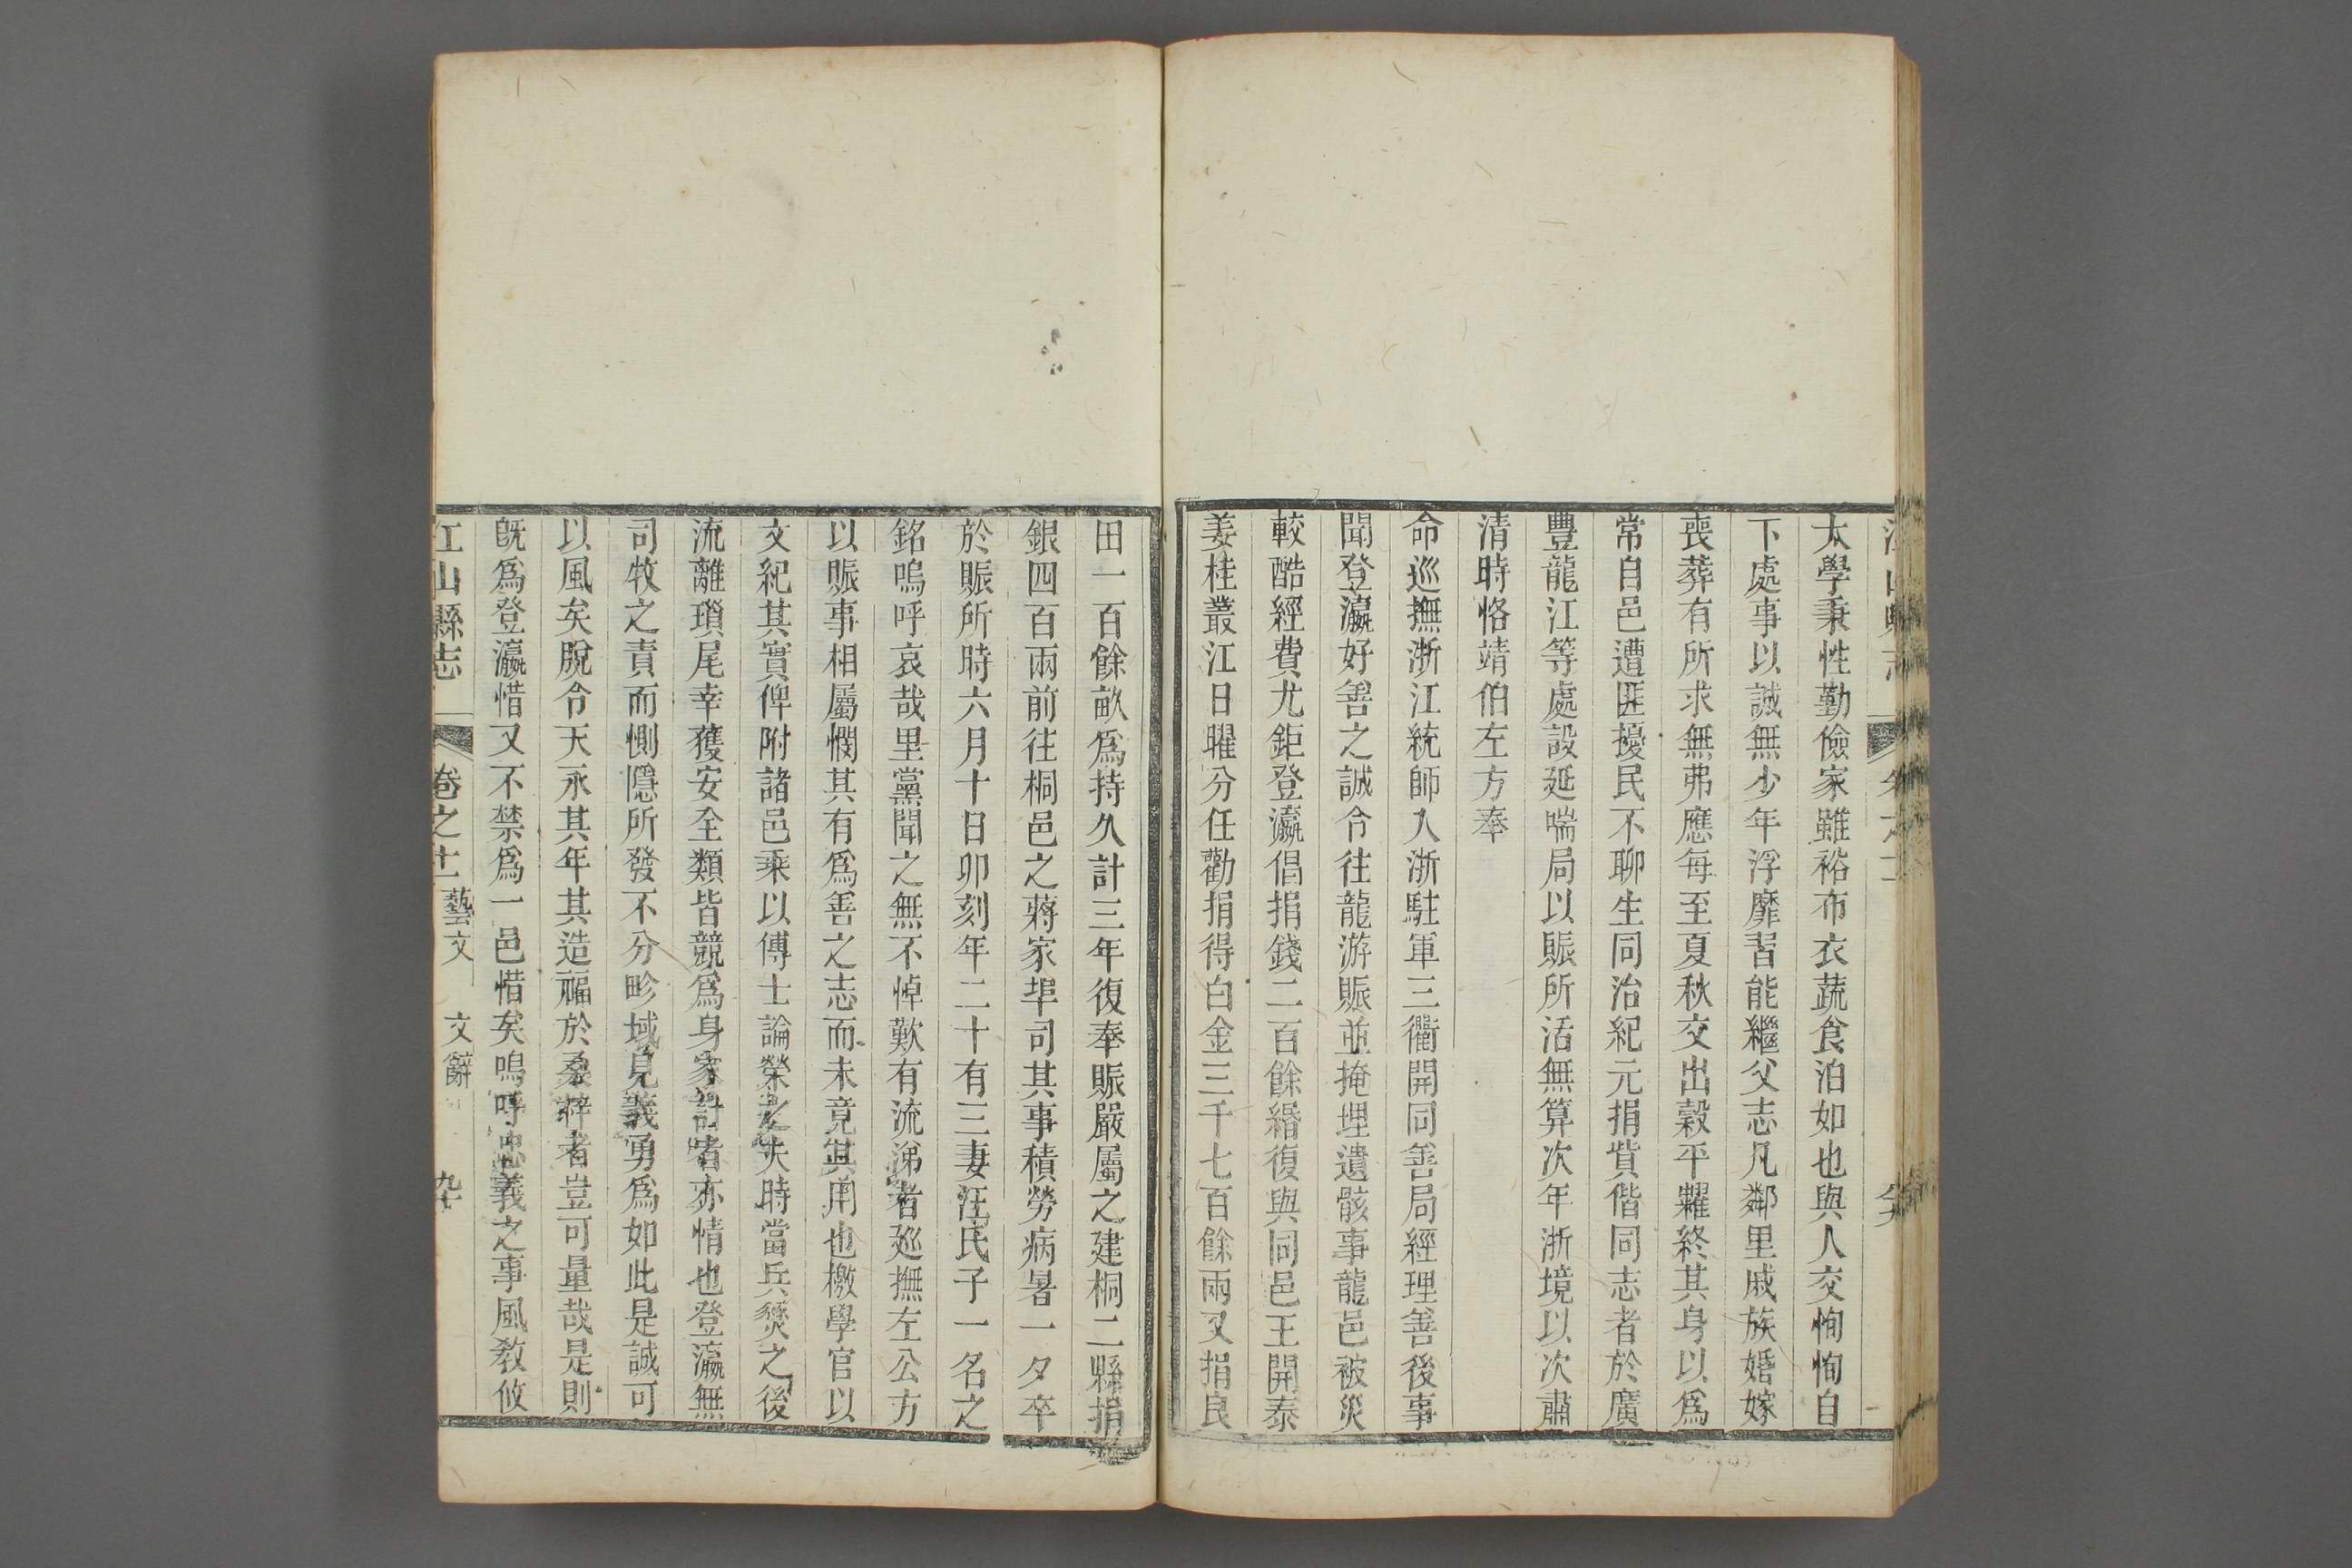 太學秉性勤儉家雖裕布衣蔬食泊如也與人交恂恂自
下處事以誠無少年浮靡習能繼父志凡鄰里戚族婚嫁
喪葬有所求無弗應每至夏秋交出穀平糶終其身以爲
常自邑遭匪擾民不聊生同治紀元捐貲偕同志者於廣
豐龍江等處設延喘局以賑所活無算次年浙境以次肅
清時恪靖伯左方奉
命巡撫浙江統師入浙駐軍三衢開同善局經理善後事
聞登瀛好善之誠令往龍游賑並掩埋遺骸事龍邑被災
較酷經費尤鉅登瀛倡捐錢二百餘緡復與同邑王開泰
姜桂叢江日曜分任勸捐得白金三千七百餘兩又捐良
田一百餘畝爲持久計三年復奉賑嚴屬之建桐二縣捐
銀四百兩前往桐邑之蔣家埠司其事積勞病暑一夕卒
於賑所時六月十日卯刻年二十有三妻汪氏子一名之
銘嗚呼哀哉里黨聞之無不悼歎有流涕者巡撫左公方
以賑事相屬憫其有爲善之志而未竟其用也檄學官以
文紀其實俾附諸邑乘以傳士論榮之夫時當兵燹之後
流離瑣尾幸獲安全類皆競爲身家計者亦情也登瀛無
司牧之責而惻隱所發不分畛域見義勇爲如此是誠可
以風矣脫令天永其年其造福於桑梓者豈可量哉是則
既爲登瀛惜又不禁爲一邑惜矣嗚呼忠義之事風教攸
江山縣志 卷之十一 藝文 文辭